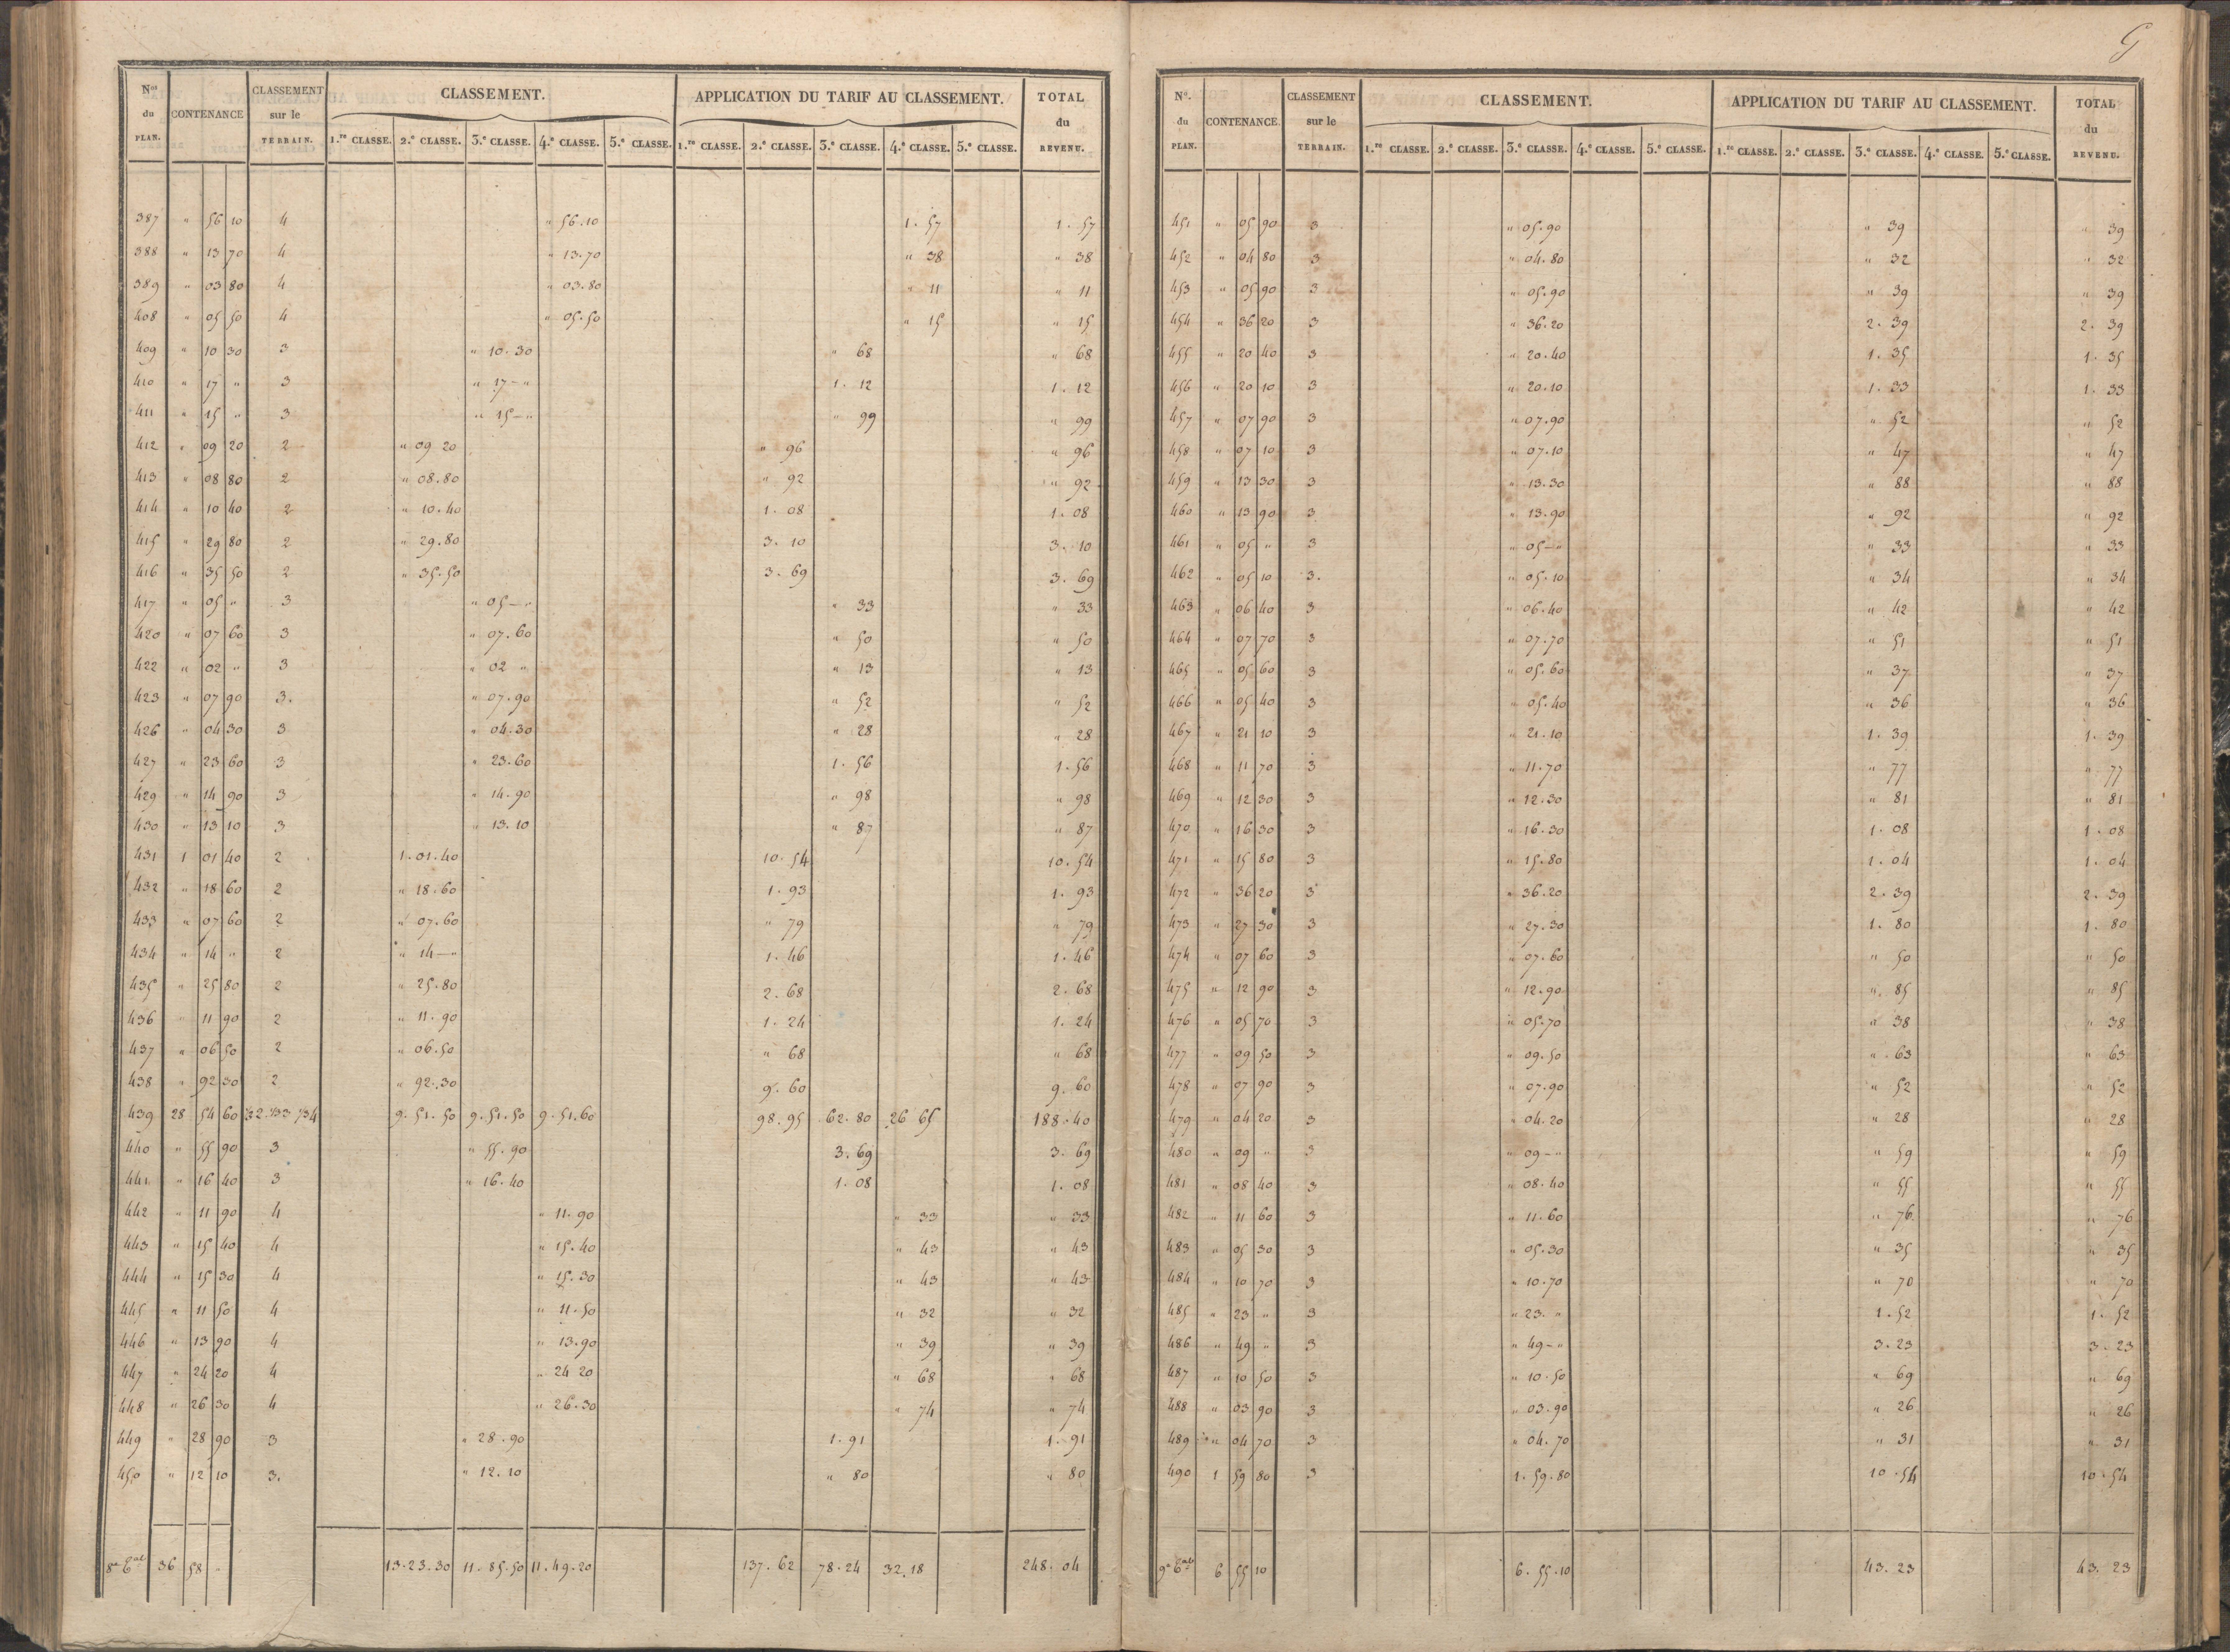 G
Nos du PLAN. CONTENANCE CLASSEMENT sur le TERRAIN. CLASSEMENT. APPLICATION DU TARIF AU CLASSEMENT. TOTAL du REVENU.
1.re CLASSE. 2.e CLASSE. 3.e CLASSE. 4.e CLASSE. 5.e CLASSE. 1.re CLASSE. 2.e CLASSE. 3.e CLASSE. 4.e CLASSE. 5.e CLASSE.
387 " 56 10 4 " 56.10 1. 57 1. 57
388 " 13 70 4 " 13.70 " 38 " 38
389 " 03 80 4 " 03.80 " 11 " 11
408 " 05 50 4 " 05.50 " 15 " 15
409 " 10 30 3 " 10.30 " 68 " 68
410 " 17 " 3 " 17-" 1. 12 1. 12
411 " 15 " 3 " 15-" " 99 " 99
412 " 09 20 2 " 09 20 " 96 " 96
413 " 08 80 2 " 08.80 " 92 " 92
414 " 10 40 2 " 10.40 1. 08 1. 08
415 " 29 80 2 " 29.80 3. 10 3. 10
416 " 35 50 2 " 35.50 3. 69 3. 69
417 " 05 " 3 " 05-" " 33 " 33
420 " 07 60 3 " 07.60 " 50 " 50
422 " 02 " 3 " 02 " " 13 " 13
423 " 07 90 3. " 07.90 " 52 " 52
426 " 04 30 3 " 04.30 " 28 " 28
427 " 23 60 3 " 23.60 1. 56 1. 56
429 " 14 90 3 " 14.90 " 98 " 98
430 " 13 10 3 " 13.10 " 87 " 87
431 1 01 40 2 1.01.40 10. 54 10. 54
432 " 18 60 2 " 18.60 1. 93 1. 93
433 " 07 60 2 " 07.60 " 79 " 79
434 " 14 " 2 " 14-" 1. 46 1. 46
435 " 25 80 2 " 25.80 2. 68 2. 68
436 " 11 90 2 " 11.90 1. 24 1. 24
437 " 06 50 2 " 06.50 " 68 " 68
438 " 92 30 2 " 92.30 9. 60 9. 60
439 28 54 60 9.51.50 9.51.50 9.51.60 98.95 62.80 26 65 188.40
440 " 55 90 3 " 55.90 3. 69 3. 69
441 " 16 40 3 " 16.40 1. 08 1. 08
442 " 11 90 4 " 11.90 " 33 " 33
443 " 15 40 4 " 15.40 " 43 " 43
444 " 15 30 4 " 15.30 " 43 " 43
445 " 11 50 4 " 11.50 " 32 " 32
446 " 13 90 4 " 13.90 " 39 " 39
447 " 24 20 4 " 24 20 " 68 " 68
448 " 26 30 4 " 26.30 " 74 " 74
449 " 28 90 3 " 28.90 1. 91 1. 91
450 " 12 10 3. " 12.10 " 80 " 80
36 58 " 13.23.30 11.85.50 11.49.20 137.62 78.24 32.18 248.04
Nos. du PLAN. CONTENANCE. CLASSEMENT sur le TERRAIN. CLASSEMENT. APPLICATION DU TARIF AU CLASSEMENT. TOTAL du REVENU.
1.re CLASSE. 2.e CLASSE. 3.e CLASSE. 4.e CLASSE. 5.e CLASSE. 1.re CLASSE. 2.e CLASSE. 3.e CLASSE. 4.e CLASSE. 5.e CLASSE.
451 " 05 90 3 " 05.90 " 39 " 39
452 " 04 80 3 " 04.80 " 32 " 32
453 " 05 90 3 " 05.90 " 39 " 39
454 " 36 20 3 " 36.20 2. 39 2. 39
455 " 20 40 3 " 20.40 1. 35 1. 35
456 " 20 10 3 " 20.10 1. 33 1. 33
457 " 07 90 3 " 07.90 " 52 " 52
458 " 07 10 3 " 07.10 " 47 " 47
459 " 13 30 3 " 13.30 " 88 " 88
460 " 13 90 3 " 13.90 " 92 " 92
461 " 05 " 3 " 05-" " 33 " 33
462 " 05 10 3. " 05.10 " 34 " 34
463 " 06 40 3 " 06.40 " 42 " 42
464 " 07 70 3 " 07.70 " 51 " 51
465 " 05 60 3 " 05.60 " 37 " 37
466 " 05 40 3 " 05.40 " 36 " 36
467 " 21 10 3 " 21.10 1. 39 1. 39
468 " 11 70 3 " 11.70 " 77 " 77
469 " 12 30 3 " 12.30 " 81 " 81
470 " 16 30 3 " 16.30 1. 08 1. 08
471 " 15 80 3 " 15.80 1. 04 1. 04
472 " 36 20 3 " 36.20 2. 39 2. 39
473 " 27 30 3 " 27.30 1. 80 1. 80
474 " 07 60 3 " 07.60 " 50 " 50
475 " 12 90 3 " 12.90 " 85 " 85
476 " 05 70 3 " 05.70 " 38 " 38
477 " 09 50 3 " 09.50 " 63 " 63
478 " 07 90 3 " 07.90 " 52 " 52
479 " 04 20 3 " 04.20 " 28 " 28
480 " 09 " 3 " 09-" " 59 " 59
481 " 08 40 3 " 08.40 " 55 " 55
482 " 11 60 3 " 11.60 " 76 " 76
483 " 05 30 3 " 05.30 " 35 " 35
484 " 10 70 3 " 10.70 " 70 " 70
485 " 23 " 3 " 23. " 1. 52 1. 52
486 " 49 " 3 " 49-" 3. 23 3. 23
487 " 10 50 3 " 10.50 " 69 " 69
488 " 03 90 3 " 03.90 " 26 " 26
489 " 04 70 3 " 04.70 " 31 " 31
490 1 59 80 3 1.59.80 10.54 10.54
6 55 10 6.55.10 43.23 43.23